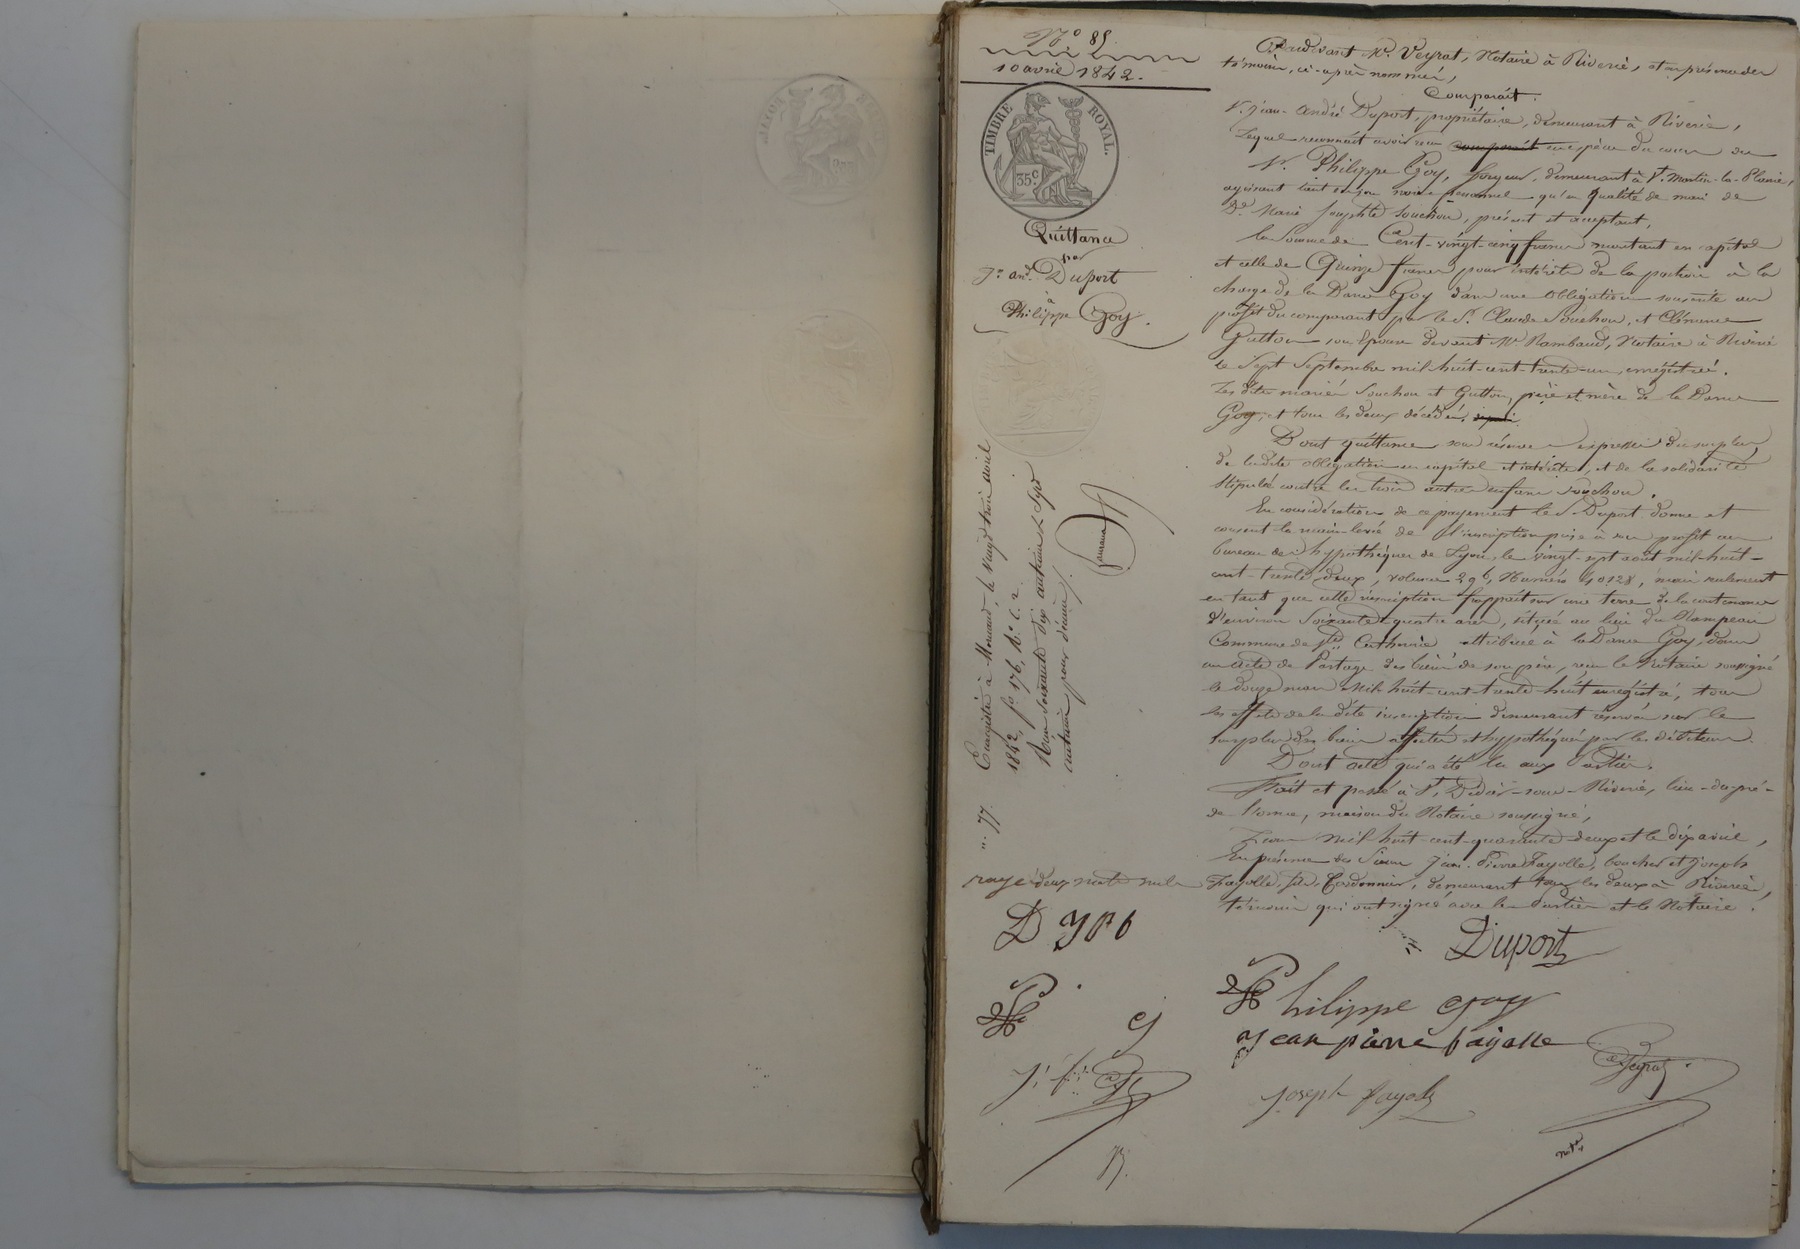 N.° 85
10 avril 1842.
TIMBRE ROYAL.
35.c
Quittance
par
Jn. And. Duport
à
Philippe Goy.
Pardevant Me. Veyrat, Notaire à Riverie, et en présence des
témoins, ci-après nommés,
Comparait.
Sr. Jean-André Duport, propriétaire, demeurant à Riverie,
Lequel reconnait avoir reçu comparait en espèces du cours de
Sr. Philippe Goy, demeurant à St. Martin-la-Plaine,
agissant tant en son nom personnel qu'en qualité de mari de
De. Marie Souchon, présent et acceptant,
la Somme de Cent-vingt-cinq francs montant en capital
et celle de Quinze francs pour intérêts de la portion à la
charge de la Dame Goy dans une obligation souscrite au
profit du comparant par le Sr. Claude Souchon, et Clémence
Gutton son Epouse devant Me Rambaud, Notaire à Riverie
le Sept Septembre mil-huit-cent-trente-un, enregistrée.
Les dits mariés Souchon et Gutton, père et mère de la Dame
Goy, et tous les deux décédés.
Dont quittance sous réserve expresse du surplus
de ladite obligation en capital et intérêts, et de la solidarité
stipulée contre les trois autres enfans Souchon.
En considération de ce payement le Sr Duport donne et
consent la main-levée de l'inscription prise à son profit au
bureau des hypothèques de Lyon, le vingt-sept août mil-huit-
cent-trente deux, volume 296, Numéro 40128, mais seulement
en tant que cette inscription frappait sur une terre de la contenance
d'environ soixante-quatre ares, située au lieu du Rampeau
Commune de Ste Catherine attribuée à la Dame Goy, dans
un acte de Partage des biens de son père, reçu le Notaire soussigné
le douze mars mil-huit-cent trente-huit enregistré, tous
les effets de la dite inscription demeurant réservés sur le
surplus des biens affectés et hypothéqués par les débiteurs.
Dont acte qui a été lu aux Parties.
Fait et passé à St. Didier-sous-Riverie, lieu-du-pré-
de l'orme, maison du Notaire soussigné,
L'an mil-huit-cent-quarante-deux et le dix avril,
En présence des Sieurs Jean-Pierre Fayolle, boucher et Joseph
Fayolle, fils, Cordonnier, demeurant tous les deux à Riverie,
témoins qui ont signé avec les Parties et le Notaire.
n.° 77. Enregistré à Mornant, le vingt trois avril
1842, f° 176, R.° C. 2.
Reçu soixante dix centimes & sept
centimes pour décime.
raye deux mots nuls
D JPf
Duport
Philippe Goy
Jean pierre fayolle
Joseph fayolle
Veyrat
note